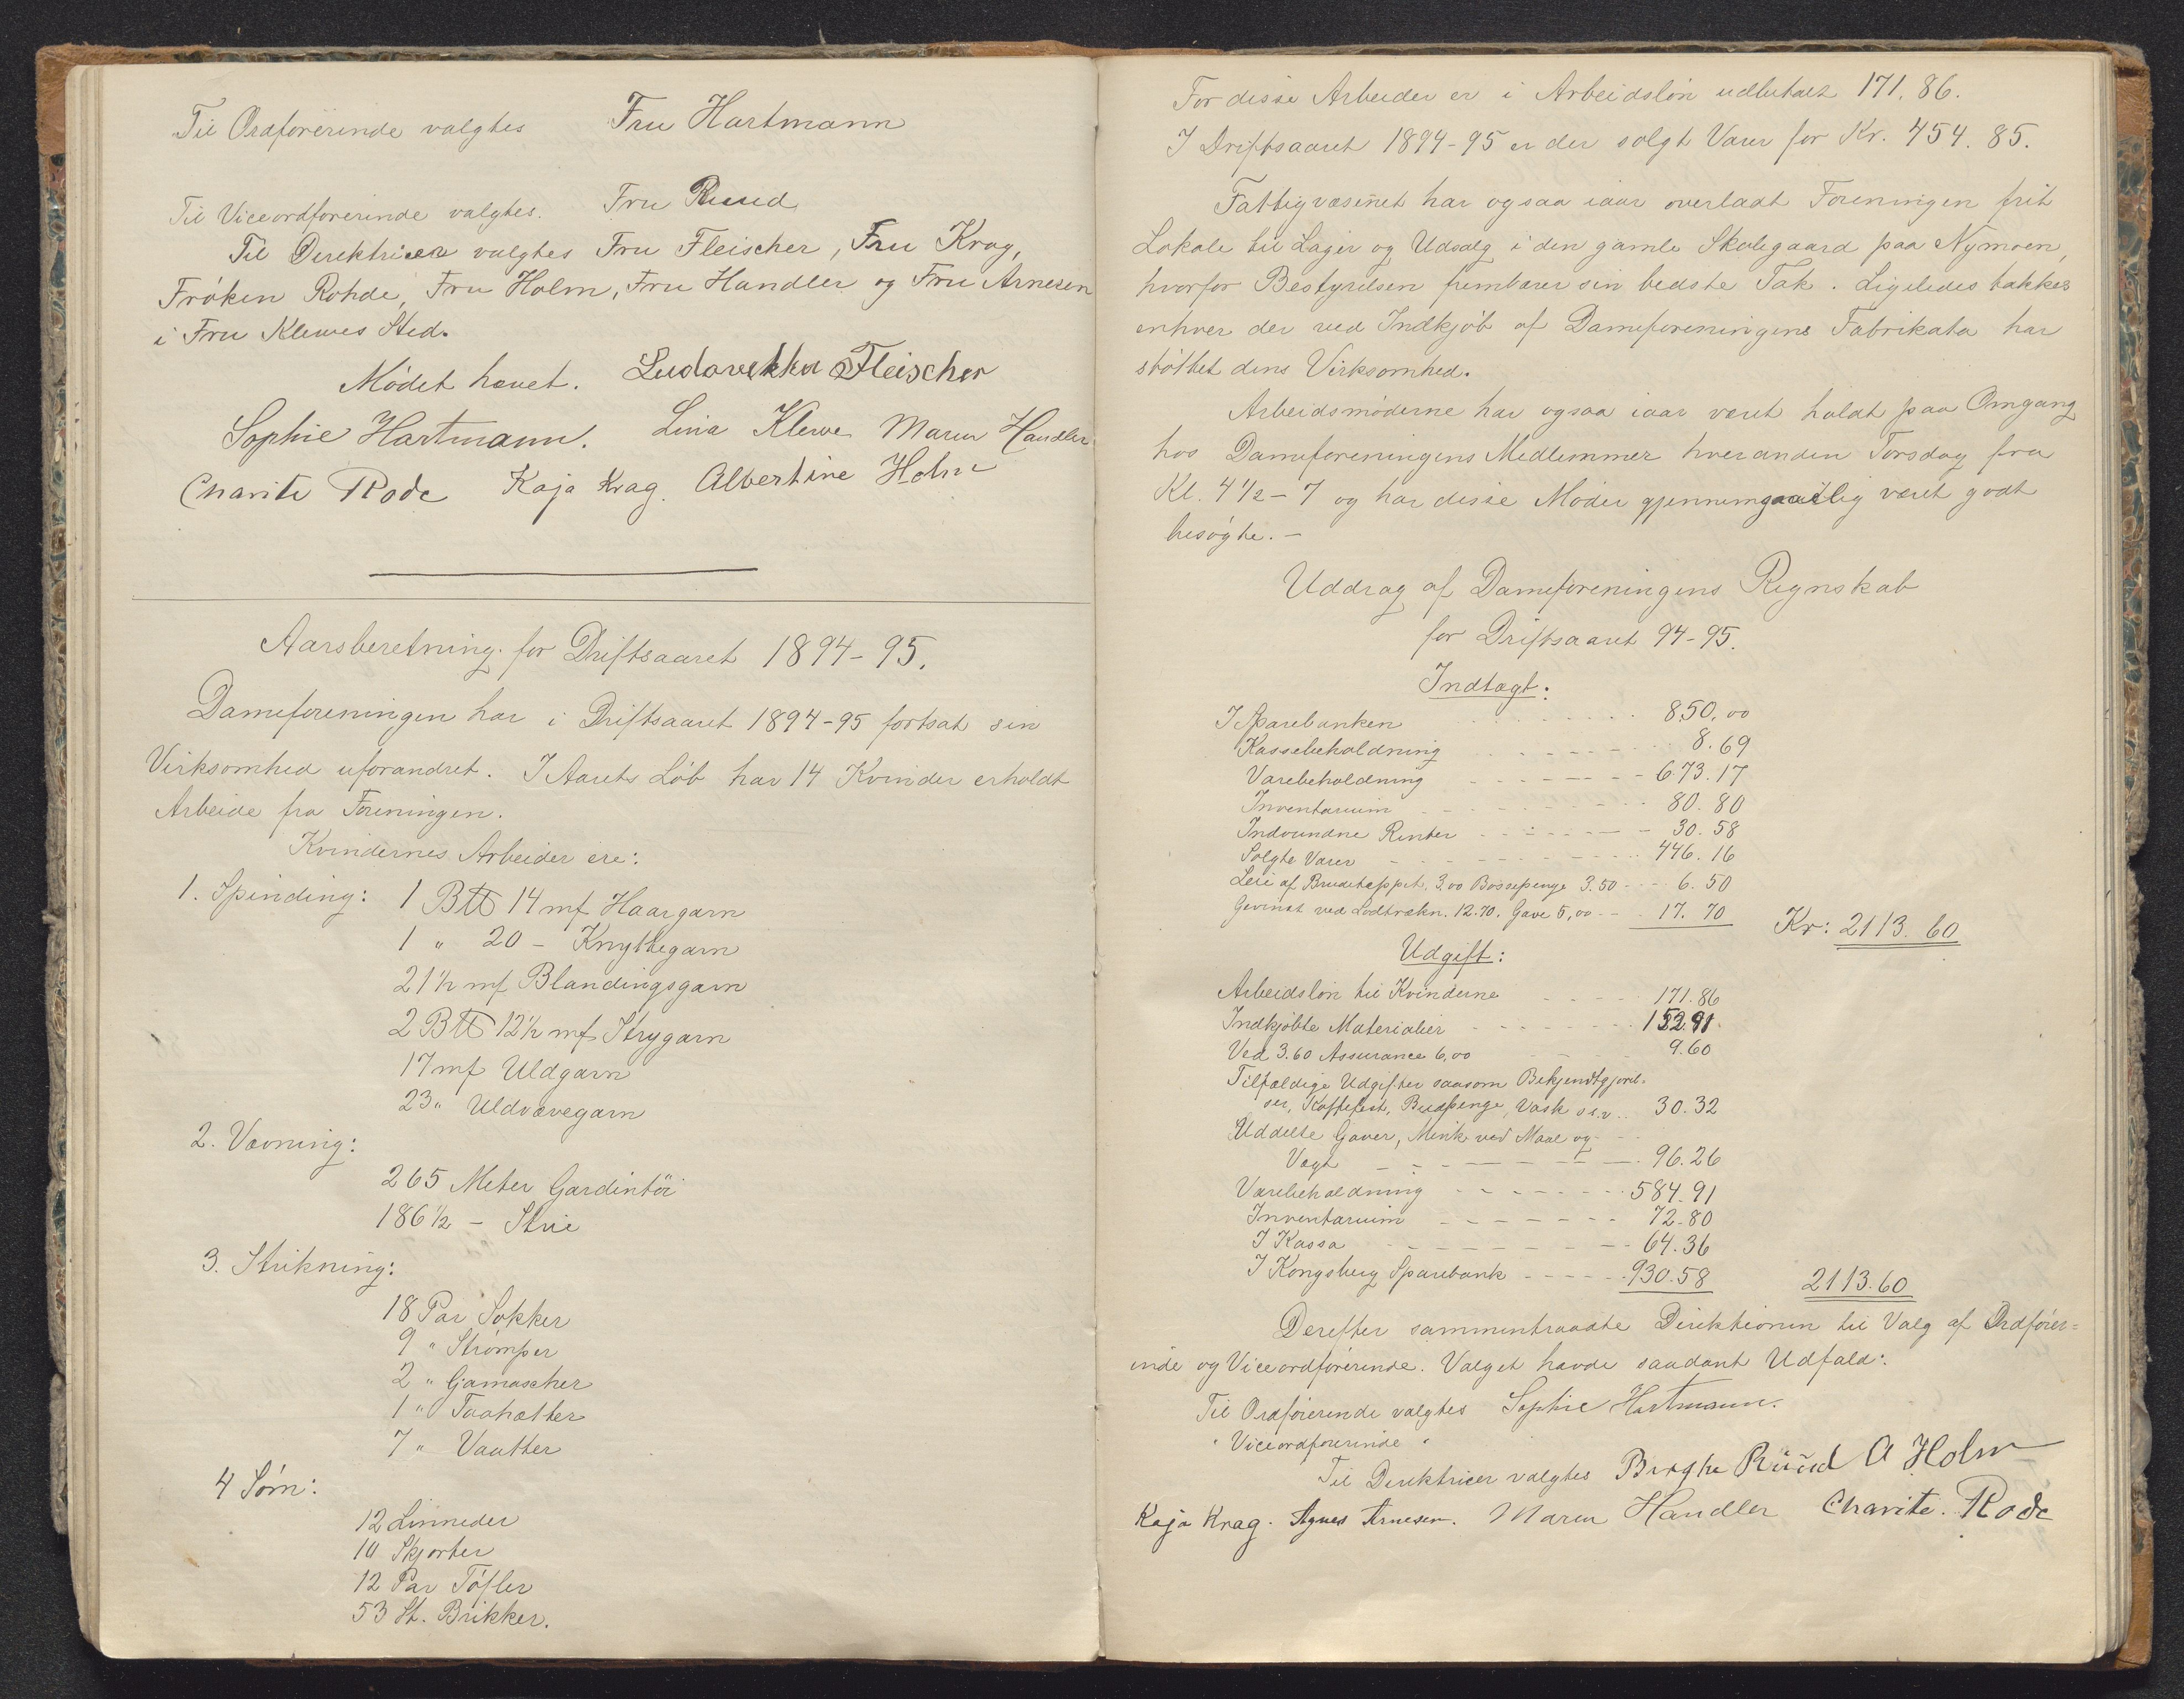 Til Ordførerinde valgtes Fru Hartmann
Til Viceordførerinde valgtes. Fru Ruud
Til Direktricer valgtes Fru Fleischer, Fru Krag,
Frøken Rohde, Fru Holm, Fru Handler og Fru Arnesen
i Fru Klewes Sted.
Mødet hævet. Ludovikka Fleischer
Sophie Hartmann. Lina Klewe Maren Handler
Charite Rode Kaja Krag. Albertine Holm
Aarsberetning for Driftsaaret 1894-95.
Dameforeningen har i Driftsaaret 1894-95 fortsat sin
Virksomhed uforandret. I Aarets Løb har 14 Kvinder erholdt
Arbeide fra Foreningen.
Kvindernes Arbeider ere:
1. Spinding: 1 Btt 14 mf Haargarn
1 " 20 - Knyttegarn
21½ mf Blandingsgarn
2 Btt 12½ mf Strygarn
17 mf Uldgarn
23 " Uldvævegarn
2. Vævning:
265 Meter Gardintöi
186½ - Strie
3. Strikning:
18 Par Sokker
9 " Strømper
2 " Gamascher
1 " Taahætter
7 " Vaatter
4 Søm:
12 Linneder
10 Skjorter
12 Par Tøfler
53 St. Brikker.
For disse Arbeider er i Arbeidsløn udbetalt 171.86.
I Driftsaaret 1894-95 er der solgt Varer for Kr. 454.85.
Fattigvæsenet har ogsaa iaar overladt Foreningen frit
Lokale til Lager og Udsalg i den gamle Skolegaard paa Nymoen,
hvorfor Bestyrelsen frembærer sin bedste Tak. Ligeledes takkes
enhver der ved Indkjøb af Dameforeningens Fabrikata har
støttet dens Virksomhed.
Arbeidsmøderne har ogsaa iaar været holdt paa Omgang
hos Dameforeningens Medlemmer hveranden Torsdag fra
Kl. 4½-7 og har disse Møder gjennemgaaelig været godt
besøgte. -
Uddrag af Dameforeningens Regnskab
for Driftsaaret 94-95.
Indtægt:
I Sparebanken 850,00
Kassebeholdning 8.69
Varebeholdning 673.17
Inventarium 80.80
Indvundne Renter 30.58
Solgte Varer 446.16
Leie af Brudetæppet 3,00 Bøssepenge 3.50 6.50
Gevinst ved Lodtrækn. 12.70. Gave 5,00 17.70 Kr: 2113.60
Udgift:
Arbeidsløn til Kvinderne 171.86
Indkjøbte Materialier 152.91
Ved 3.60 Assurance 6,00 9.60
Tilfældige Udgifter saasom Bekjendtgjørel-
ser, Kaffefest, Budpenge, Vask o.s.v. 30.32
Uddelte Gaver, Mink ved Maal og
Vægt 96.26
Varebeholdning 584.91
Inventarium 72.80
I Kassa 64.36
I Kongsberg Sparebank 930.58 2113.60
Derefter sammentraadte Direktionen til Valg af Ordfører=
inde og Viceordførerinde. Valget havde saadant Udfald:
Til Ordførerinde valgtes Sophie Hartmann.
" Viceordførerinde "
Til Direktricer valgtes Birgthe Ruud A Holm
Kaja Krag. Agnes Arnesen. Maren Handler Charite. Rode